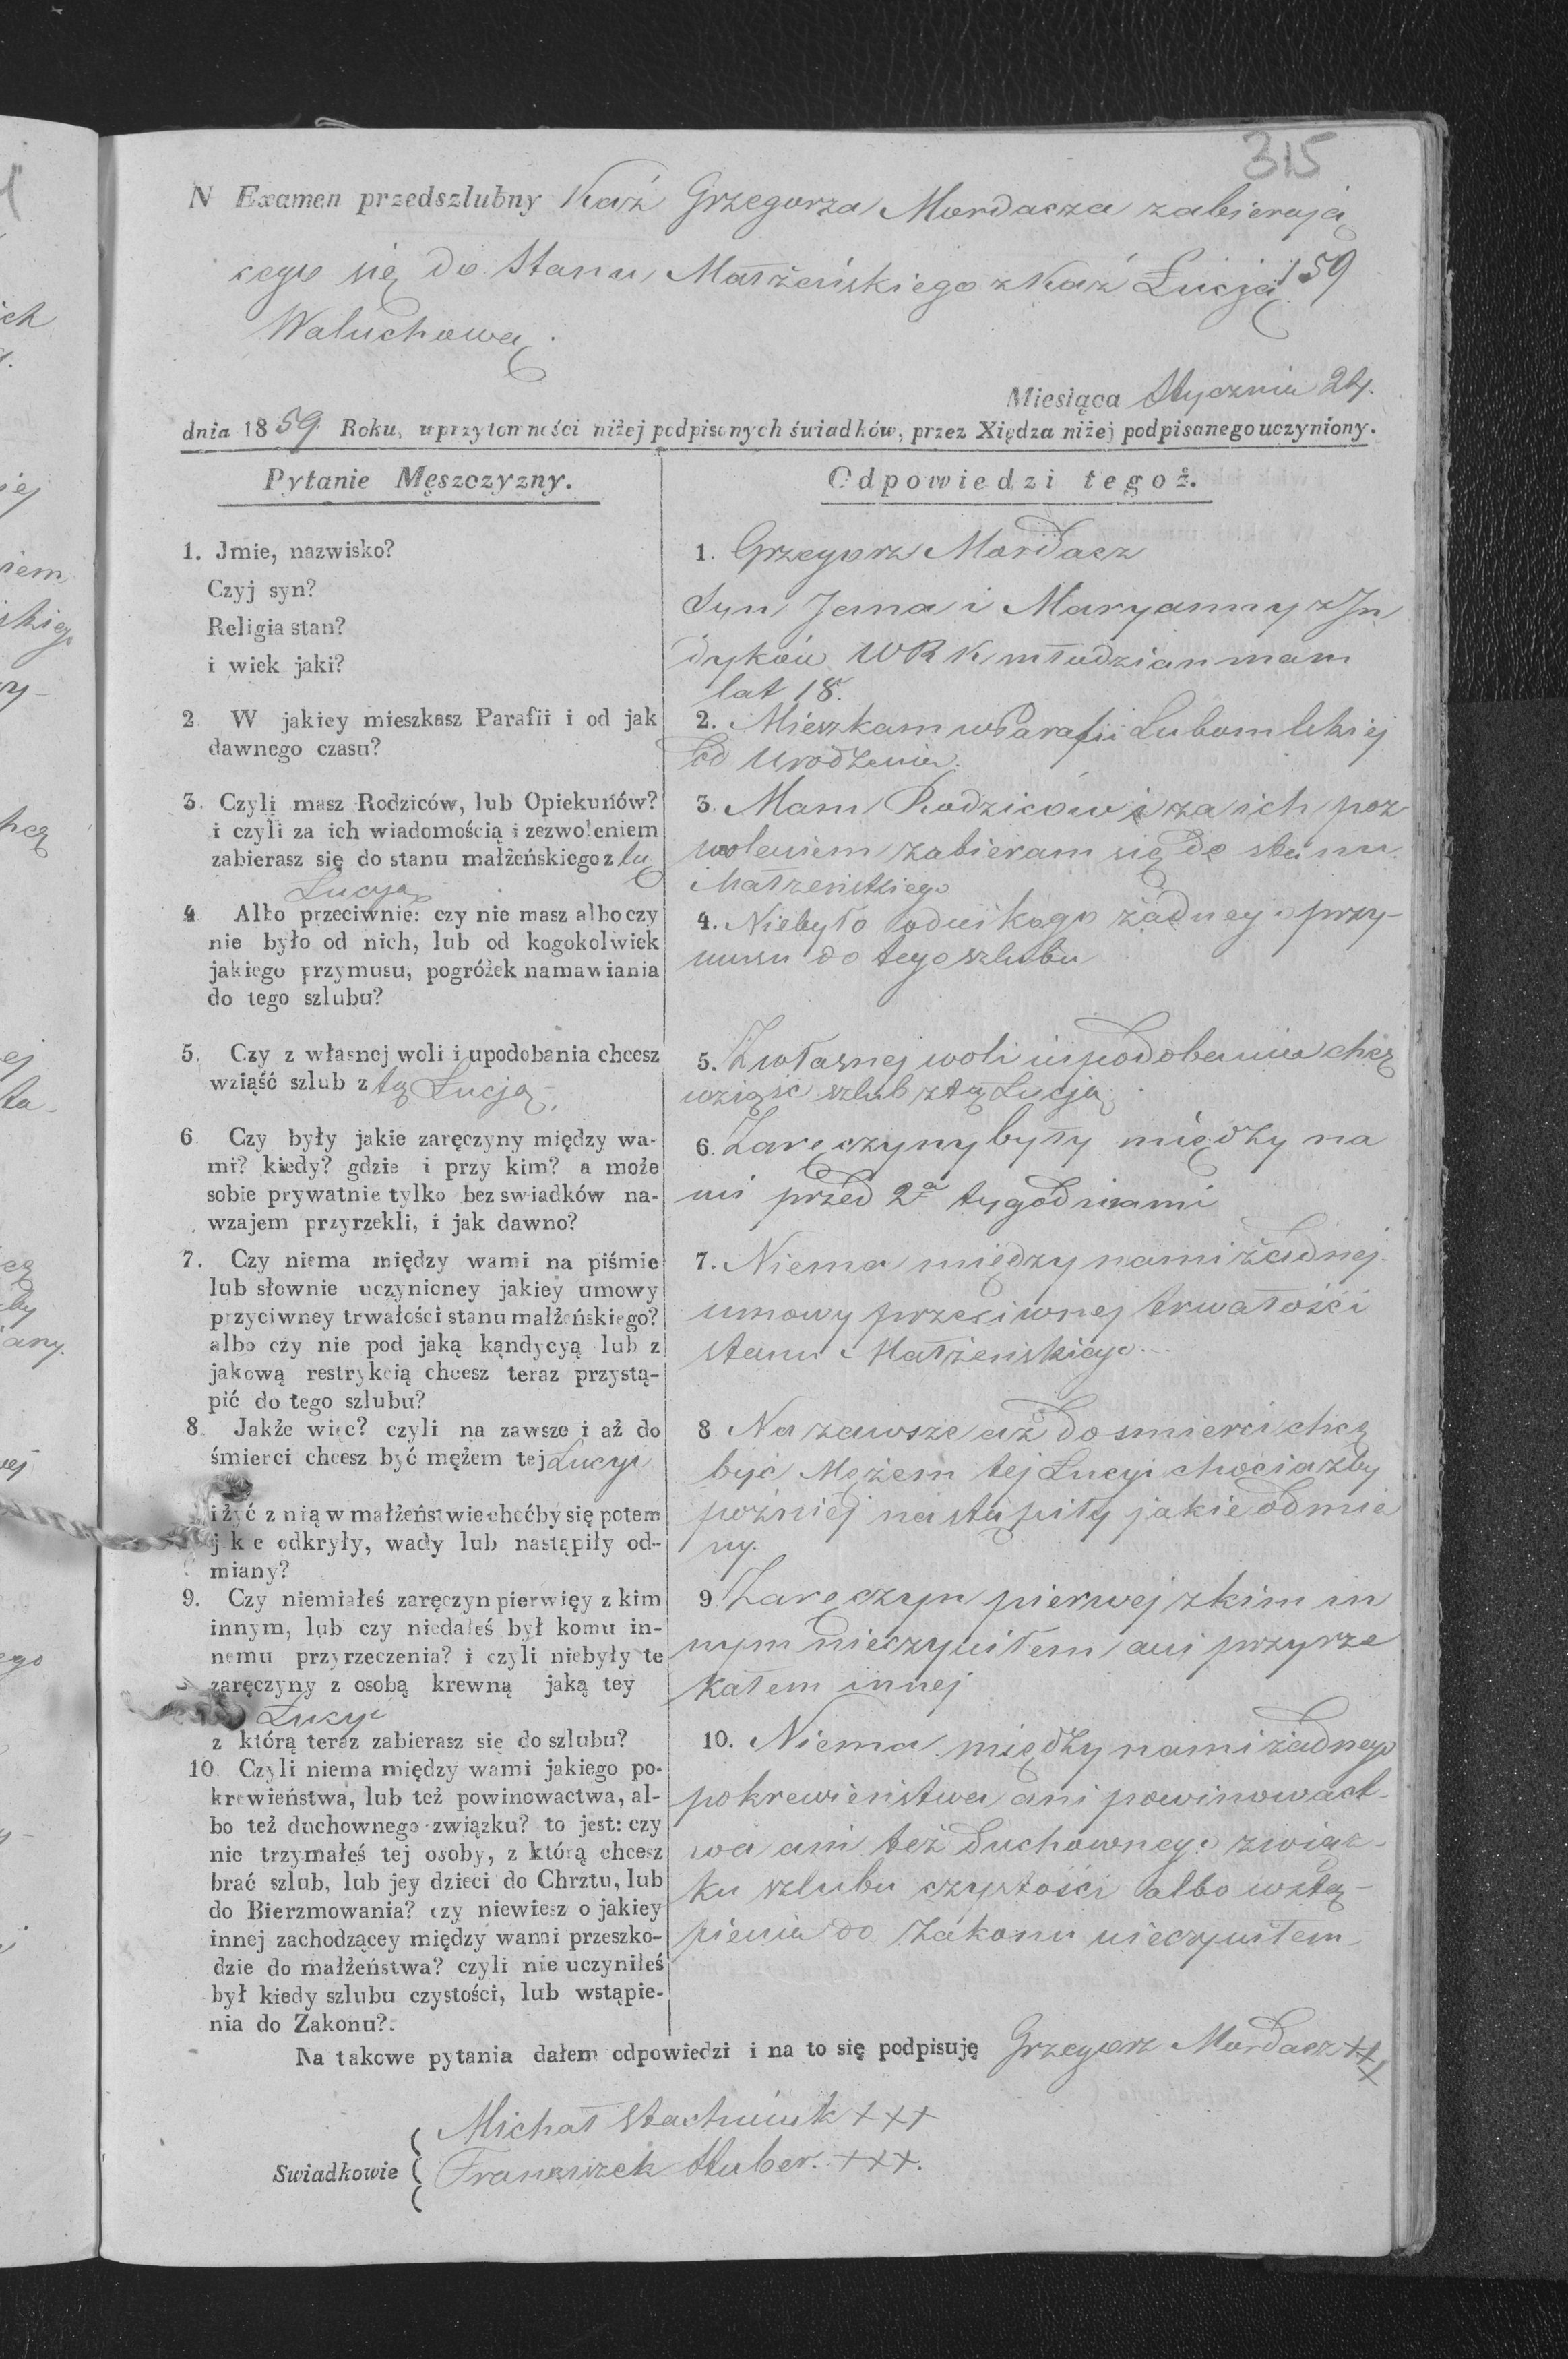 315
N Examen przedszlubny Kaź Grzegorza Mordacza zabierają
cego się do Stanu Małżeńskiego z Kaź Łucją 159
Waluchową.
Miesiąca Stycznia 24.
dnia 1859 Roku, w przytomności niżej podpisanych świadków, przez Xiędza niżej podpisanego uczyniony.
Pytanie Męszczyzny.
Odpowiedzi tegoż.
1. Jmie, nazwisko?
Czyj syn?
Religia stan?
i wiek jaki?
1. Grzegorz Mordacz
Syn Jana i Maryanny z In
dyków WRK młodzian mam
lat 18.
2. W jakiey mieszkasz Parafii i od jak
dawnego czasu?
2. Mieszkam w Parafii Lubomlskiej
od Urodzenia.
3. Czyli masz Rodziców, lub Opiekunów?
i czyli za ich wiadomością i zezwoleniem
zabierasz się do stanu małżeńskiego z tą
Łucyą
3. Mam Rodziców i za ich poz
woleniem zabieram się do stanu
Małżeńskiego
4. Albo przeciwnie: czy nie masz albo czy
nie było od nich, lub od kogokolwiek
jakiego przymusu, pogróżek namawiania
do tego szlubu?
4. Niebyło od nikogo żadnego przy-
musu do tego szlubu
5. Czy z własnej woli i upodobania chcesz
wziąść szlub z tą Łucją.
5. Z własnej woli i upodobania chcę
wziąść szlub z tą Łucją.
6. Czy były jakie zaręczyny między wa-
mi? kiedy? gdzie i przy kim? a może
sobie prywatnie tylko bez swiadków na-
wzajem przyrzekli, i jak dawno?
6. Zaręczyny były między na
mi przed 2a tygodniami
7. Czy niema między wami na piśmie
lub słownie uczynioney jakiey umowy
przyciwney trwałości stanu małżeńskiego?
albo czy nie pod jaką kąndycyą lub z
jakową restrykcią chcesz teraz przystą-
pić do tego szlubu?
7. Niema między nami żadnej
umowy przeciwnej trwałości
stanu Małżeńskiego
8. Jakże więc? czyli na zawsze i aż do
śmierci chcesz być mężem tej Łucyi
i żyć z nią w małżeństwie choćby się potem
j k e odkryły, wady lub nastąpiły od-
miany?
8. Na zawsze aż do smierci chcę
być Mężem tej Łucyi chociażby
poźniej nastąpiły jakie odmia
ny.
9. Czy niemiałeś zaręczyn pierwięy z kim
innym, lub czy niedałeś był komu in-
nemu przyrzeczenia? i czyli niebyły te
zaręczyny z osobą krewną jaką tey
Łucyi
z którą teraz zabierasz się do szlubu?
9. Zaręczyn pierwej z kim in
nym nieczyniłem ani przyrze
kałem innej
10. Czyli niema między wami jakiego po-
krewieństwa, lub też powinowactwa, al-
bo też duchownego związku? to jest: czy
nie trzymałeś tej osoby, z którą chcesz
brać szlub, lub jey dzieci do Chrztu, lub
do Bierzmowania? czy niewiesz o jakiey
innej zachodzącey między wami przeszko-
dzie do małżeństwa? czyli nie uczyniłeś
był kiedy szlubu czystości, lub wstąpie-
nia do Zakonu?.
10. Niema między nami żadnego
pokrewieństwa ani powinowact-
wa ani też duchownego związ-
ku szlubu czystości albo wstą-
pienia do Zakonu nieczyniłem
Na takowe pytania dałem odpowiedzi i na to się podpisuję Grzegorz Mordacz +++
Swiadkowie
Michał Stachniuk +++
Franciszek Huber. +++.